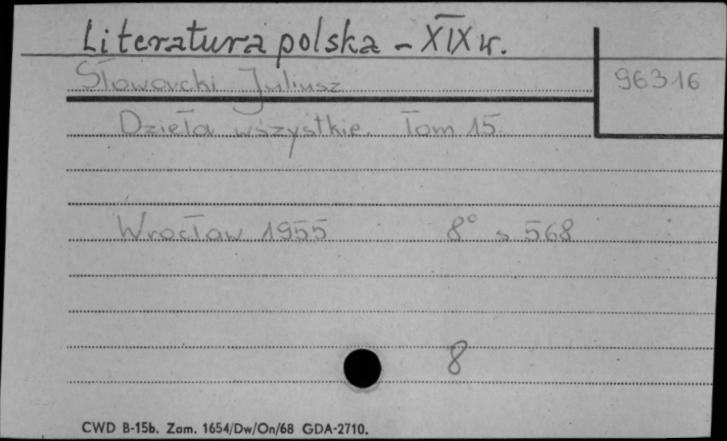 Literatura polska - XIX w.
Słowacki Juliusz
96316
Dzieła wszystkie. Tom 15.
Wrocław 1955 8° s 568
8
CWD B-15b. Zam. 1654/Dw/On/68 GDA-2710.